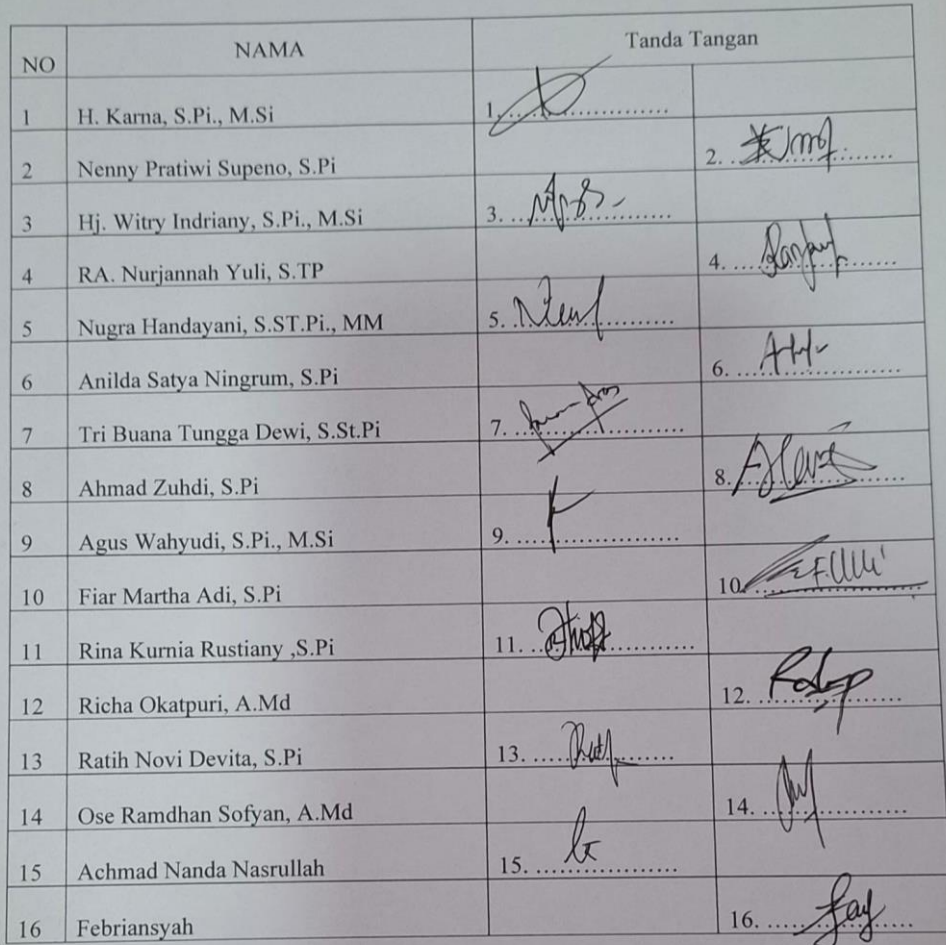 NO NAMA Tanda Tangan
1 H. Karna, S.Pi., M.Si 1.
2 Nenny Pratiwi Supeno, S.Pi 2.
3 Hj. Witry Indriany, S.Pi., M.Si 3.
4 RA. Nurjannah Yuli, S.TP 4.
5 Nugra Handayani, S.ST.Pi., MM 5.
6 Anilda Satya Ningrum, S.Pi 6.
7 Tri Buana Tungga Dewi, S.St.Pi 7.
8 Ahmad Zuhdi, S.Pi 8.
9 Agus Wahyudi, S.Pi., M.Si 9.
10 Fiar Martha Adi, S.Pi 10.
11 Rina Kurnia Rustiany ,S.Pi 11.
12 Richa Okatpuri, A.Md 12.
13 Ratih Novi Devita, S.Pi 13.
14 Ose Ramdhan Sofyan, A.Md 14.
15 Achmad Nanda Nasrullah 15.
16 Febriansyah 16.